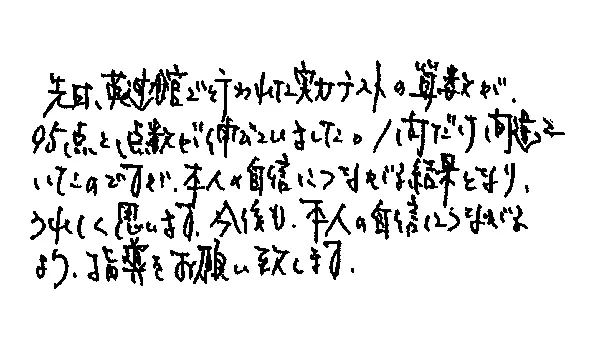 先日、英進館で行われた実力テストの算数が、
95点と点数が伸びていました。1問だけ間違って
いたのですが、本人の自信につながる結果となり、
うれしく思います。今後も、本人の自信につながる
よう、ご指導をお願い致します。